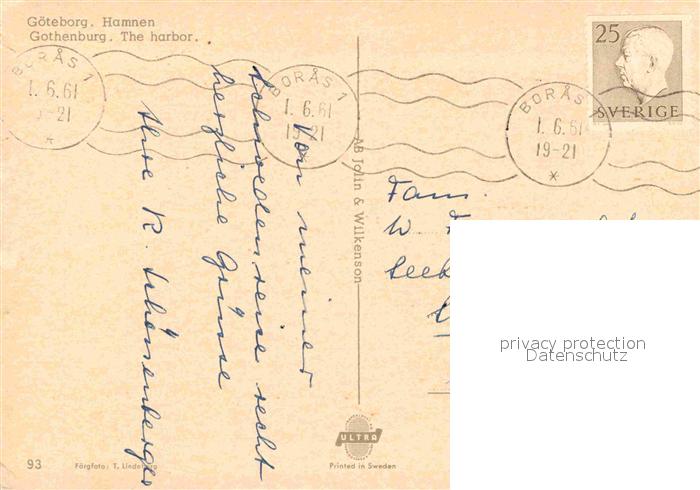 Göteborg. Hamnen
Gothenburg. The harbor.
BORÅS 1
1.6.61
19-21
BORÅS 1
1.6.61
19-21
BORÅS
1.6.61
19-21
25
SVERIGE
Von meiner
Schwedenreise recht
herzliche Grüsse
Ihre R. Schönenberger
AB Jolin & Wilkenson
Fam.
W. F
Seek
privacy protection
Datenschutz
93
Färgfoto: T. Lindeberg
ULTRA
Printed in Sweden